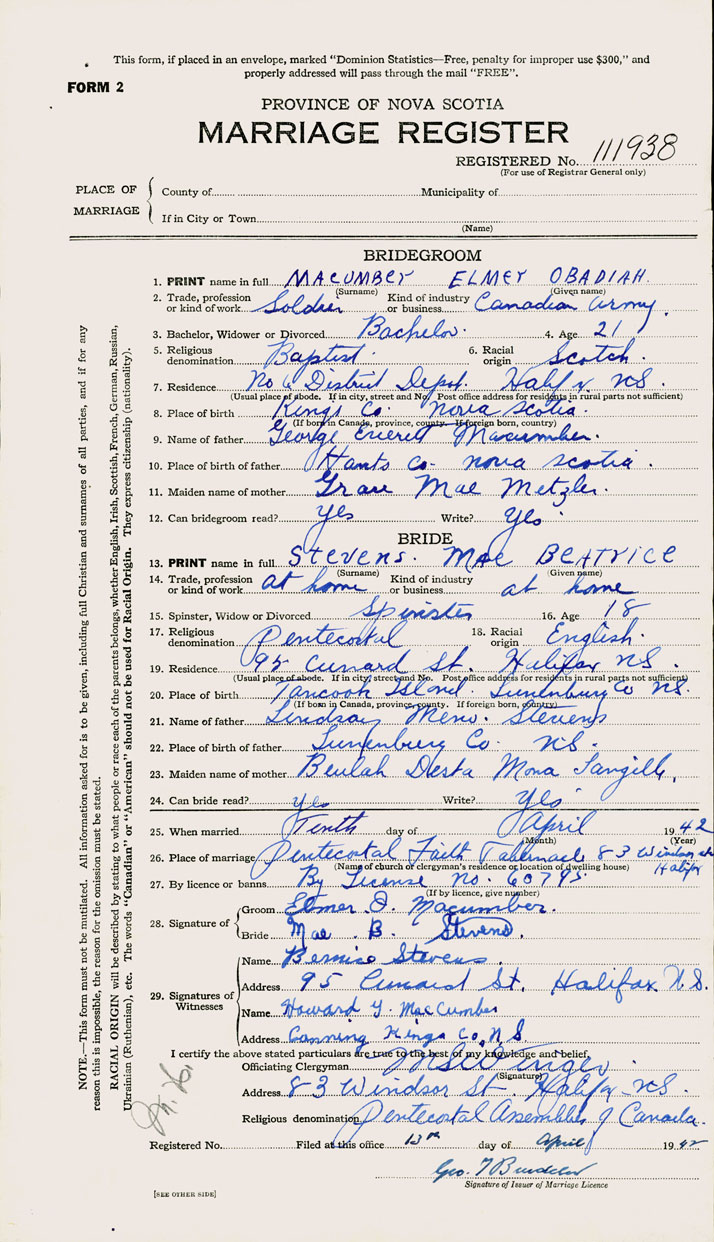 This form, if placed in an envelope, marked "Dominion Statistics—Free, penalty for improper use $300," and
properly addressed will pass through the mail "FREE".
FORM 2
PROVINCE OF NOVA SCOTIA
MARRIAGE REGISTER
REGISTERED No. 111938
(For use of Registrar General only)
PLACE OF MARRIAGE
County of Municipality of
If in City or Town
(Name)
BRIDEGROOM
1. PRINT name in full MACUMBEr ELMEr OBADIAH.
(Surname) (Given name)
2. Trade, profession or kind of work Soldier Kind of industry or business Canadian Army.
3. Bachelor, Widower or Divorced Bachelor. 4. Age 21
5. Religious denomination Baptist. 6. Racial origin Scotch.
7. Residence No 6 District Depot. Halifx NS.
(Usual place of abode. If in city, street and No. Post office address for residents in rural parts not sufficient)
8. Place of birth Kings Co. Nova Scotia.
(If born in Canada, province, county. If foreign born, country)
9. Name of father George Everett Macumber.
10. Place of birth of father Hants Co. nova scotia.
11. Maiden name of mother Grace Mae Metzler.
12. Can bridegroom read? yes Write? Yes
BRIDE
13. PRINT name in full STEVENS. MAE BEATrICE
(Surname) (Given name)
14. Trade, profession or kind of work at home Kind of industry or business at home
15. Spinster, Widow or Divorced Spinster 16. Age 18
17. Religious denomination Pentecostal 18. Racial origin English.
19. Residence 95 Cunard St. Halifax NS.
(Usual place of abode. If in city, street and No. Post office address for residents in rural parts not sufficient)
20. Place of birth Tancook Island. Lunenburg Co NS.
(If born in Canada, province, county. If foreign born, country)
21. Name of father Lindsay Meno. Stevens
22. Place of birth of father Lunenburg Co. NS.
23. Maiden name of mother Beulah Desta Mona Langille,
24. Can bride read? yes Write? Yes
25. When married Tenth day of April 1942
(Month) (Year)
26. Place of marriage Pentecostal Faith Tabernacle 83 Windsor st Halifax
(Name of church or clergyman's residence or location of dwelling house)
27. By licence or banns By License No. 60795.
(If by licence, give number)
28. Signature of
Groom Elmer O. Macumber.
Bride Mae. B. Stevens.
29. Signatures of Witnesses
Name Bernice Stevens.
Address 95 Cunard St. Halifax N.S.
Name Howard Y. MacCumber
Address Canning Kings Co, N.S.
I certify the above stated particulars are true to the best of my knowledge and belief,
Officiating Clergyman
(Signature)
Address 83 Windsor St. Halifax NS.
Religious denomination Pentecostal Assemblies of Canada.
Registered No. Filed at this office 13th day of April 1942
Geo.
Signature of Issuer of Marriage Licence
[SEE OTHER SIDE]
NOTE.—This form must not be mutilated. All information asked for is to be given, including full Christian and surnames of all parties, and if for any
reason this is impossible, the reason for the omission must be stated.
RACIAL ORIGIN will be described by stating to what people or race each of the parents belongs, whether English, Irish, Scottish, French, German, Russian,
Ukrainian (Ruthenian), etc. The words "Canadian" or "American" should not be used for Racial Origin. They express citizenship (nationality).